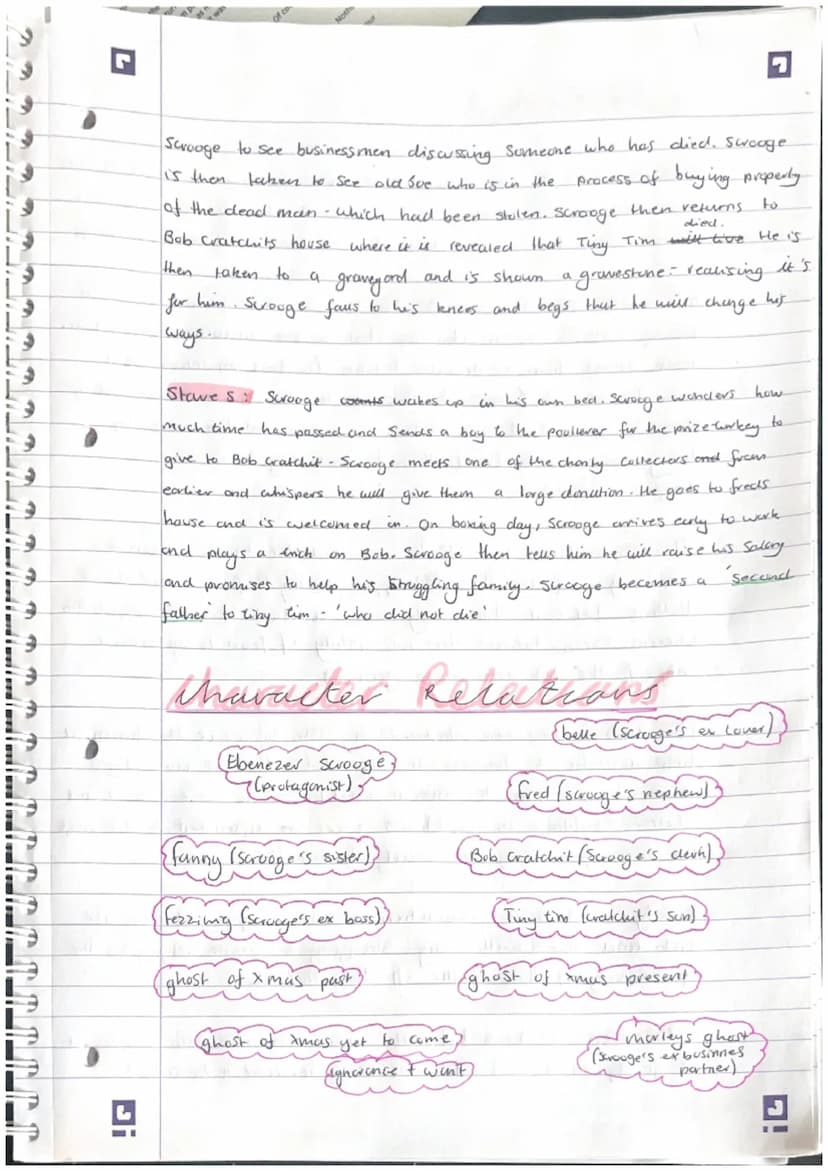 Scrooge to see businessmen discussing someone who has died. Scrooge
is then taken to see old Joe who is in the process of buying property
of the dead man - which had been stolen. Scrooge then returns to
died.
Bob Cratchits house where it is revealed that Tiny Tim will live He is
then taken to a graveyard and is shown a gravestone - realising it's
for him. Scrooge falls to his knees and begs that he will change his
ways.
Stave 5: Scrooge wakes up in his own bed. Scrooge wonders how
much time has passed and sends a boy to the poulterer for the prize turkey to
give to Bob Cratchit - Scrooge meets one of the charity collectors and from
earlier and whispers he will give them a large donation. He goes to freds
house and is welcomed in. On boxing day, Scrooge arrives early to work
and plays a trick on Bob. Scrooge then tells him he will raise his salary
and promises to help his struggling family. Scrooge becomes a 'second
father' to tiny tim - 'who did not die'
Character Relations
belle (Scrooge's ex lover)
Ebenezer Scrooge
(protagonist)
fred (scrooge's nephew)
fanny (Scrooge's sister)
Bob Cratchit (Scrooge's clerk)
fezziwig (Scrooge's ex boss)
Tiny tim (cratchit's son)
ghost of xmas past
ghost of xmas present
ghost of xmas yet to come
ignorance + want
marleys ghost
(scrooge's ex businnes
partner)